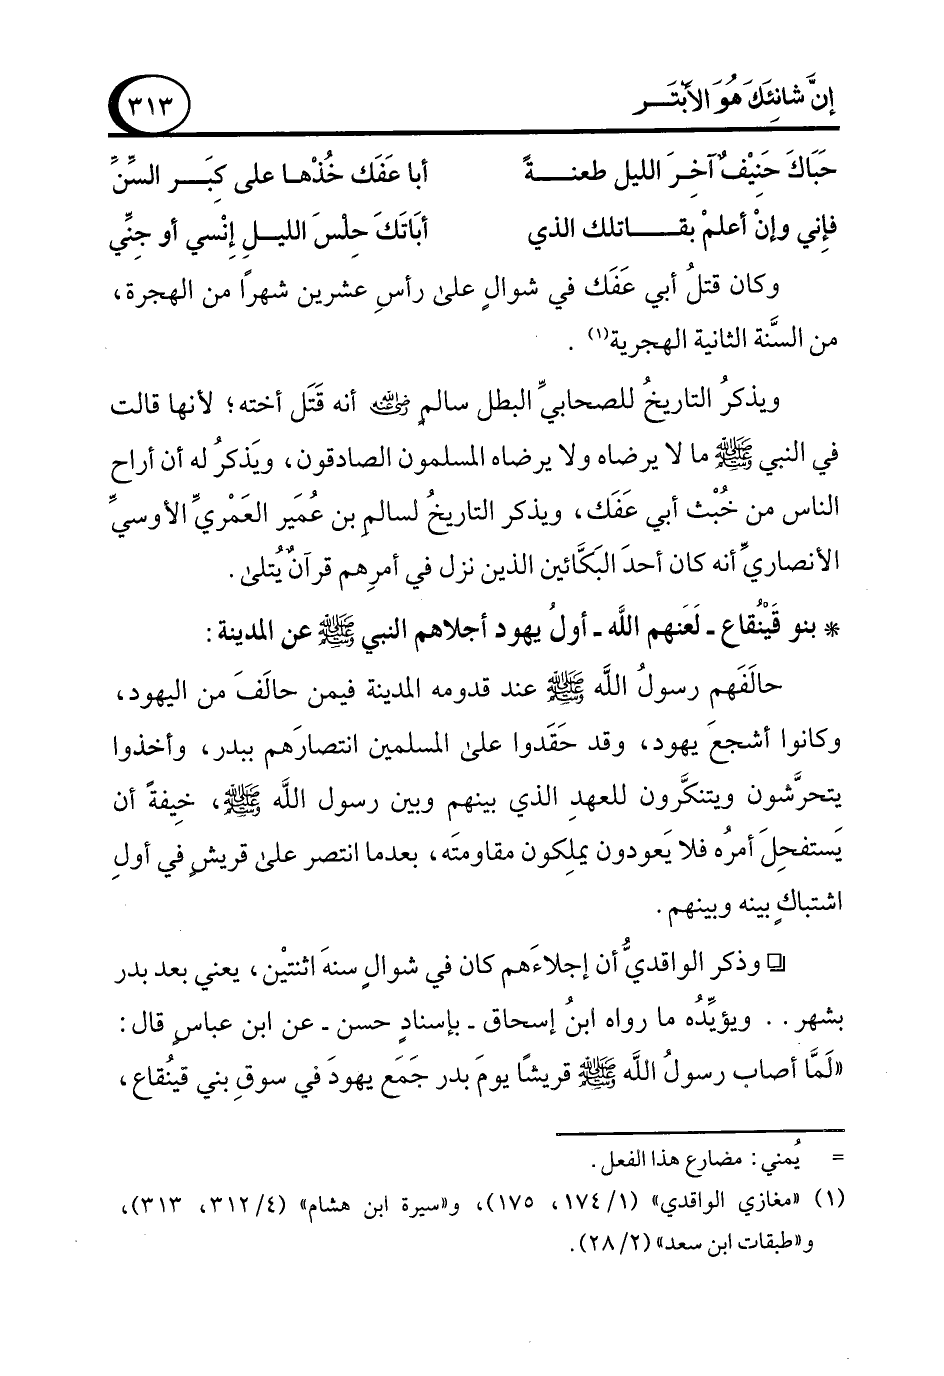 إنَّ شانئِكَ هُوَ الأبْتَـر
٣١٣
حَبَاكَ حَنِيْفٌ آخِرَ الليل طعنـــةً أبا عَفَك خُذْهـا على كِبَـر السِّنِّ
فإني وإنْ أعلمْ بقـــاتلك الذي أبَاتَكَ حِلْسَ الليـلِ إنْسي أو جنِّي
وكان قتلُ أبي عَفَك في شوالٍ على رأسِ عشرين شهراً من الهجرة،
من السَّنة الثانية الهجرية(١) .
ويذكرُ التاريخُ للصحابيِّ البطل سالمٍ رضي الله عنه أنه قَتَل أخته؛ لأنها قالت
في النبي ﷺ ما لا يرضاه ولا يرضاه المسلمون الصادقون، ويَذكرُ له أن أراح
الناس من خُبْث أبي عَفَك، ويذكر التاريخُ لسالمِ بن عُمَير العَمْريِّ الأوسيِّ
الأنصاريِّ أنه كان أحدَ البَكَّائين الذين نزل في أمرِهم قرآنٌ يُتلى.
* بنو قَيْنُقاع ـ لَعَنهم الله ـ أولُ يهود أجلاهم النبي ﷺ عن المدينة :
حالَفَهم رسولُ اللَّه ﷺ عند قدومه المدينة فيمن حالَفَ من اليهود،
وكانوا أشجعَ يهود، وقد حَقَدوا على المسلمين انتصارَهم ببدر، وأخذوا
يتحرَّشون ويتنكَّرون للعهدِ الذي بينهم وبين رسول اللَّه ﷺ، خِيفةً أن
يَستفحِلَ أمرُه فلا يَعودون يملِكون مقاومتَه، بعدما انتصر على قريشٍ في أولِ
اشتباكٍ بينه وبينهم.
❏ وذكر الواقديُّ أن إجلاءَهم كان في شوالٍ سنةَ اثنتيْن، يعني بعد بدر
بشهر.. ويؤيِّدُه ما رواه ابنُ إسحاق ـ بإسنادٍ حسن ـ عن ابن عباسٍ قال:
«لَمَّا أصاب رسولُ اللَّه ﷺ قريشًا يومَ بدر جَمَع يهودَ في سوقِ بني قينُقاع،
= يُمني: مضارع هذا الفعل.
(١) «مغازي الواقدي» (١/ ١٧٤، ١٧٥)، و«سيرة ابن هشام» (٤/ ٣١٢، ٣١٣)،
و«طبقات ابن سعد» (٢/ ٢٨).